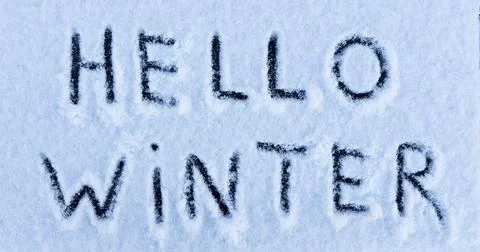 HELLO
WiNTER